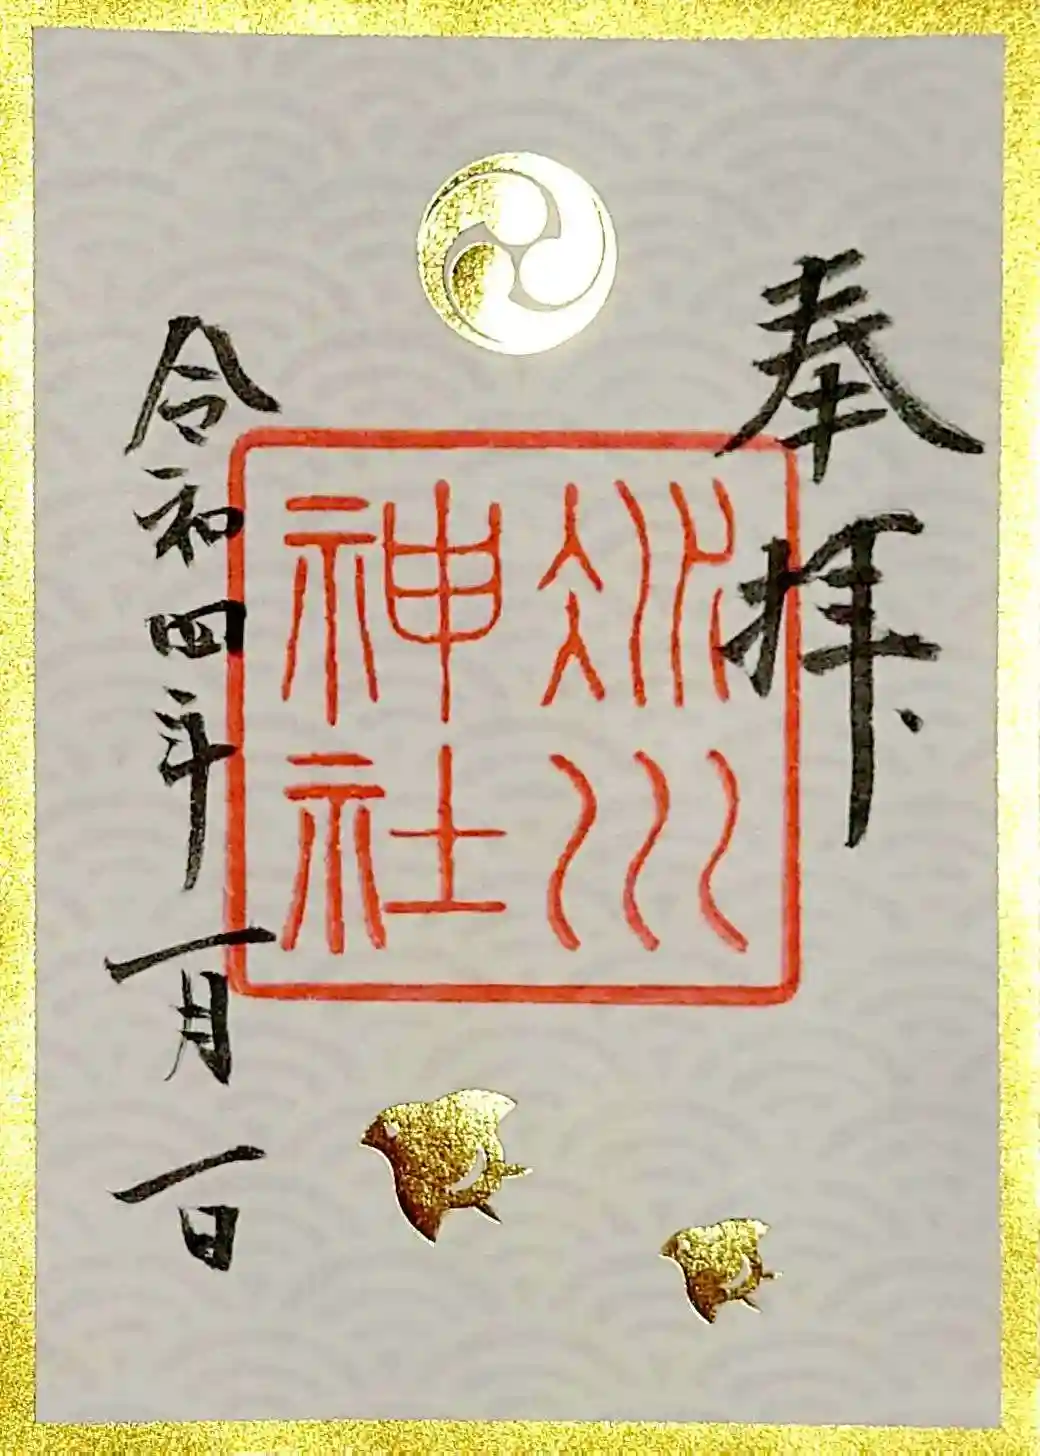 奉拝
氷川
神社
令和四年一月一日